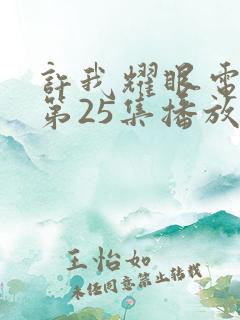 許我耀眼電
第25集播放
王怡如
未经同意禁止转载